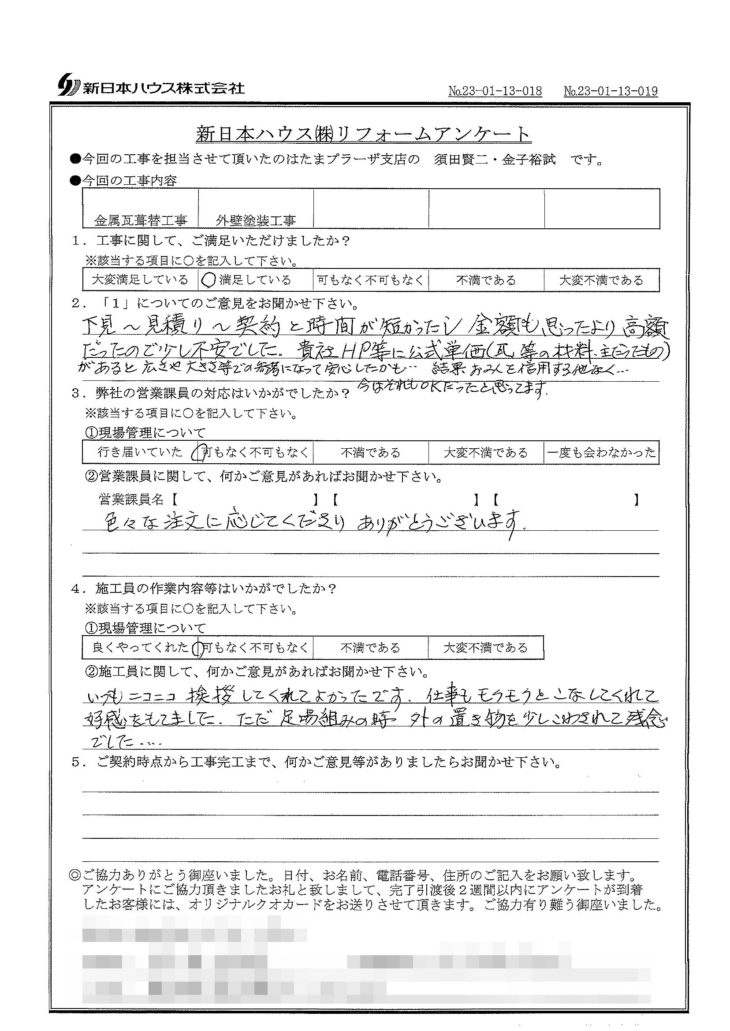 新日本ハウス株式会社
№23-01-13-018 №23-01-13-019
新日本ハウス㈱リフォームアンケート
●今回の工事を担当させて頂いたのはたまプラーザ支店の 須田賢二・金子裕試 です。
●今回の工事内容
金属瓦葺替工事 外壁塗装工事
1．工事に関して、ご満足いただけましたか？
※該当する項目に○を記入して下さい。
大変満足している ○満足している 可もなく不可もなく 不満である 大変不満である
2．「1」についてのご意見をお聞かせ下さい。
下見～見積り～契約と時間が短かったし 金額も思ったより高額
だったので少し不安でした。貴社HP等に公式単価(瓦等の材料.主だったもの)
があると広さや大きさ等での参考になって安心したかも… 結果おみくを信用する他なく…
今はそれもOKだったと思ってます.
3．弊社の営業課員の対応はいかがでしたか？
※該当する項目に○を記入して下さい。
①現場管理について
行き届いていた 可もなく不可もなく 不満である 大変不満である 一度も会わなかった
②営業課員に関して、何かご意見があればお聞かせ下さい。
営業課員名【 】【 】【 】
色々な注文に応じてくださり ありがとうございます.
4．施工員の作業内容等はいかがでしたか？
※該当する項目に○を記入して下さい。
①現場管理について
良くやってくれた 可もなく不可もなく 不満である 大変不満である
②施工員に関して、何かご意見があればお聞かせ下さい。
いつもニコニコ挨拶してくれてよかったです. 仕事もモクモクとこなしてくれて
好感をもてました. ただ足場組みの時 外の置き物を少しこわされて残念
でした….
5．ご契約時点から工事完工まで、何かご意見等がありましたらお聞かせ下さい。
◎ご協力ありがとう御座いました。日付、お名前、電話番号、住所のご記入をお願い致します。
アンケートにご協力頂きましたお礼と致しまして、完了引渡後２週間以内にアンケートが到着
したお客様には、オリジナルクオカードをお送りさせて頂きます。ご協力有り難う御座いました。